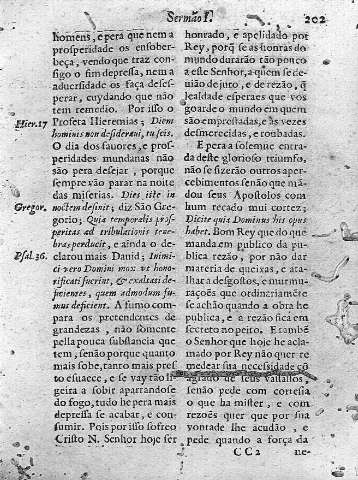 Sermão I. 202
homens, e pera que nem a
prosperidade os ensober-
beça, vendo que traz con-
sigo o fim depressa, nem a
adversidade os faça deses-
perar, cuydando que não
tem remedio. Por isso o
Hier.17 Profeta Hieremias; Diem
hominis non desideraui, tu scis.
O dia dos fauores, e pros-
peridades mundanas não
são pera desejar, porque
sempre vão parar na noite
das miserias. Dies iste in
Gregor. noctem desinit; diz São Gre-
gorio; Quia temporalis pros-
peritas ad tribulationis tene-
bras perducit, e aïnda o de-
Psal.36. clarou mais Dauid; Inimi-
ci vero Domini mox vt hono-
rificati fuerint, & exaltati de-
ficientes, quem admodum fu-
mus deficient. A fumo com-
para os pretendentes de
grandezas, não sómente
pella pouca substancia que
tem, senão porque quanto
mais sobe, tanto mais pres
to esuaece, e se vay tão li-
geira a sobir apartandose
do fogo, tudo he pera mais
depressa se acabar, e con-
sumir. Pois por isso sofreo
Cristo N. Senhor hoje ser
honrado, e apelidado por
Rey, porq̃ se as honras do
mundo durarão tão pouco
a este Senhor, a quẽm se de-
uião de juro, e de rezão, q̃
lealdade esperaes que vos
goarde o mundo em quem
são emprestadas, e às vezes
desmerecidas, e roubadas.
E pera a solemne entra-
da deste glorioso triumfo,
não se fizerão outros aper-
cebimentos senão que mã-
dou seus Apostolos com
hum recado mui cortez;
Dicite quia Dominus his opus
habet. Bom Rey que do que
manda em publico da pu-
blica rezão, por não dar
materia de queixas, e ata-
lhar a desgostos, e murmu-
rações que ordinariamẽte
se achão quando a obra he
publica, e a rezão fica em
secreto no peito. E tambẽ
o Senhor que hoje he acla-
mado por Rey não quer re
medear sua necessidade cõ
agrauo de seus vassallos,
senão pede com cortesia
o que ha mister, e com
rezoẽs quer que por sua
vontade lhe acudão, e
pede quando a força da
CC2 ne-